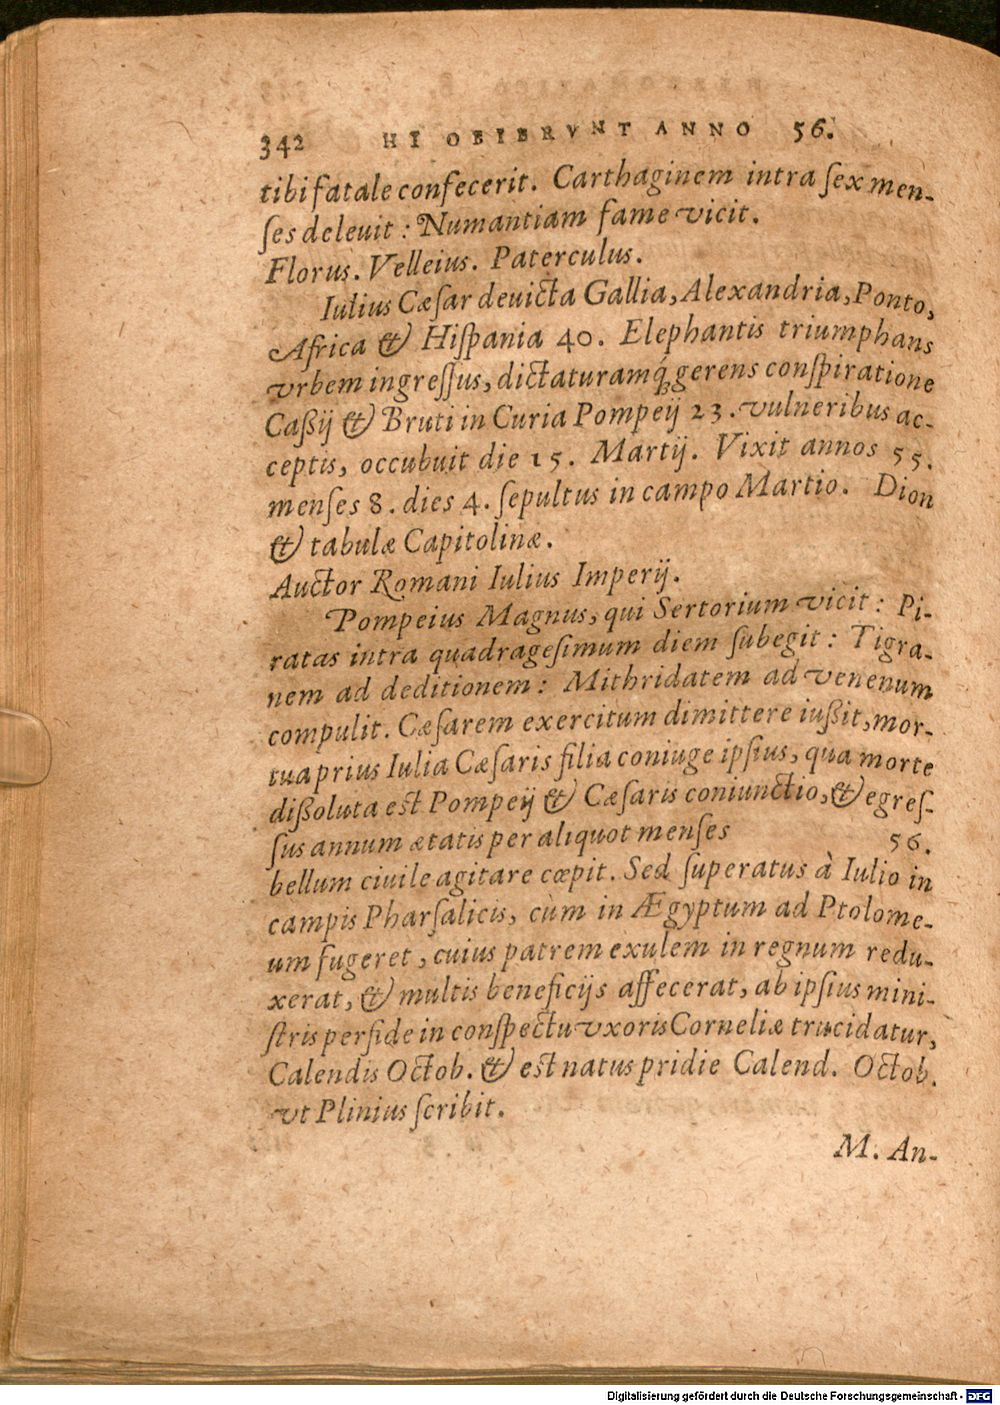 342 HI OBIERVNT ANNO 56.
tibi fatale confecerit. Carthaginem intra ſex men-
ſes deleuit : Numantiam fame vicit.
Florus. Velleius. Paterculus.
Iulius Cæſar deuicta Gallia, Alexandria, Ponto,
Africa & Hiſpania 40. Elephantis triumphans
vrbem ingreſſus, dictaturamq́ gerens conſpiratione
Caßij & Bruti in Curia Pompeij 23. vulneribus ac-
ceptis, occubuit die 15. Martij. Vixit annos 55.
menſes 8. dies 4. ſepultus in campo Martio. Dion
& tabulæ Capitolinæ.
Auctor Romani Iulius Imperij.
Pompeius Magnus, qui Sertorium vicit : Pi-
ratas intra quadrageſimum diem ſubegit : Tigra-
nem ad deditionem : Mithridatem ad venenum
compulit. Cæſarem exercitum dimittere iußit, mor-
tua prius Iulia Cæſaris filia coniuge ipſius, qua morte
dißoluta est Pompeij & Cæſaris coniunctio, & egreſ-
ſus annum ætatis per aliquot menſes 56.
bellum ciuile agitare cœpit. Sed ſuperatus à Iulio in
campis Pharſalicis, cùm in Ægyptum ad Ptolome-
um fugeret, cuius patrem exulem in regnum redu-
xerat, & multis beneficijs affecerat, ab ipſius mini-
ſtris perfide in conſpectu vxoris Corneliæ trucidatur,
Calendis Octob. & est natus pridie Calend. Octob.
vt Plinius ſcribit.
M. An-
Digitalisierung gefördert durch die Deutsche Forschungsgemeinschaft - DFG